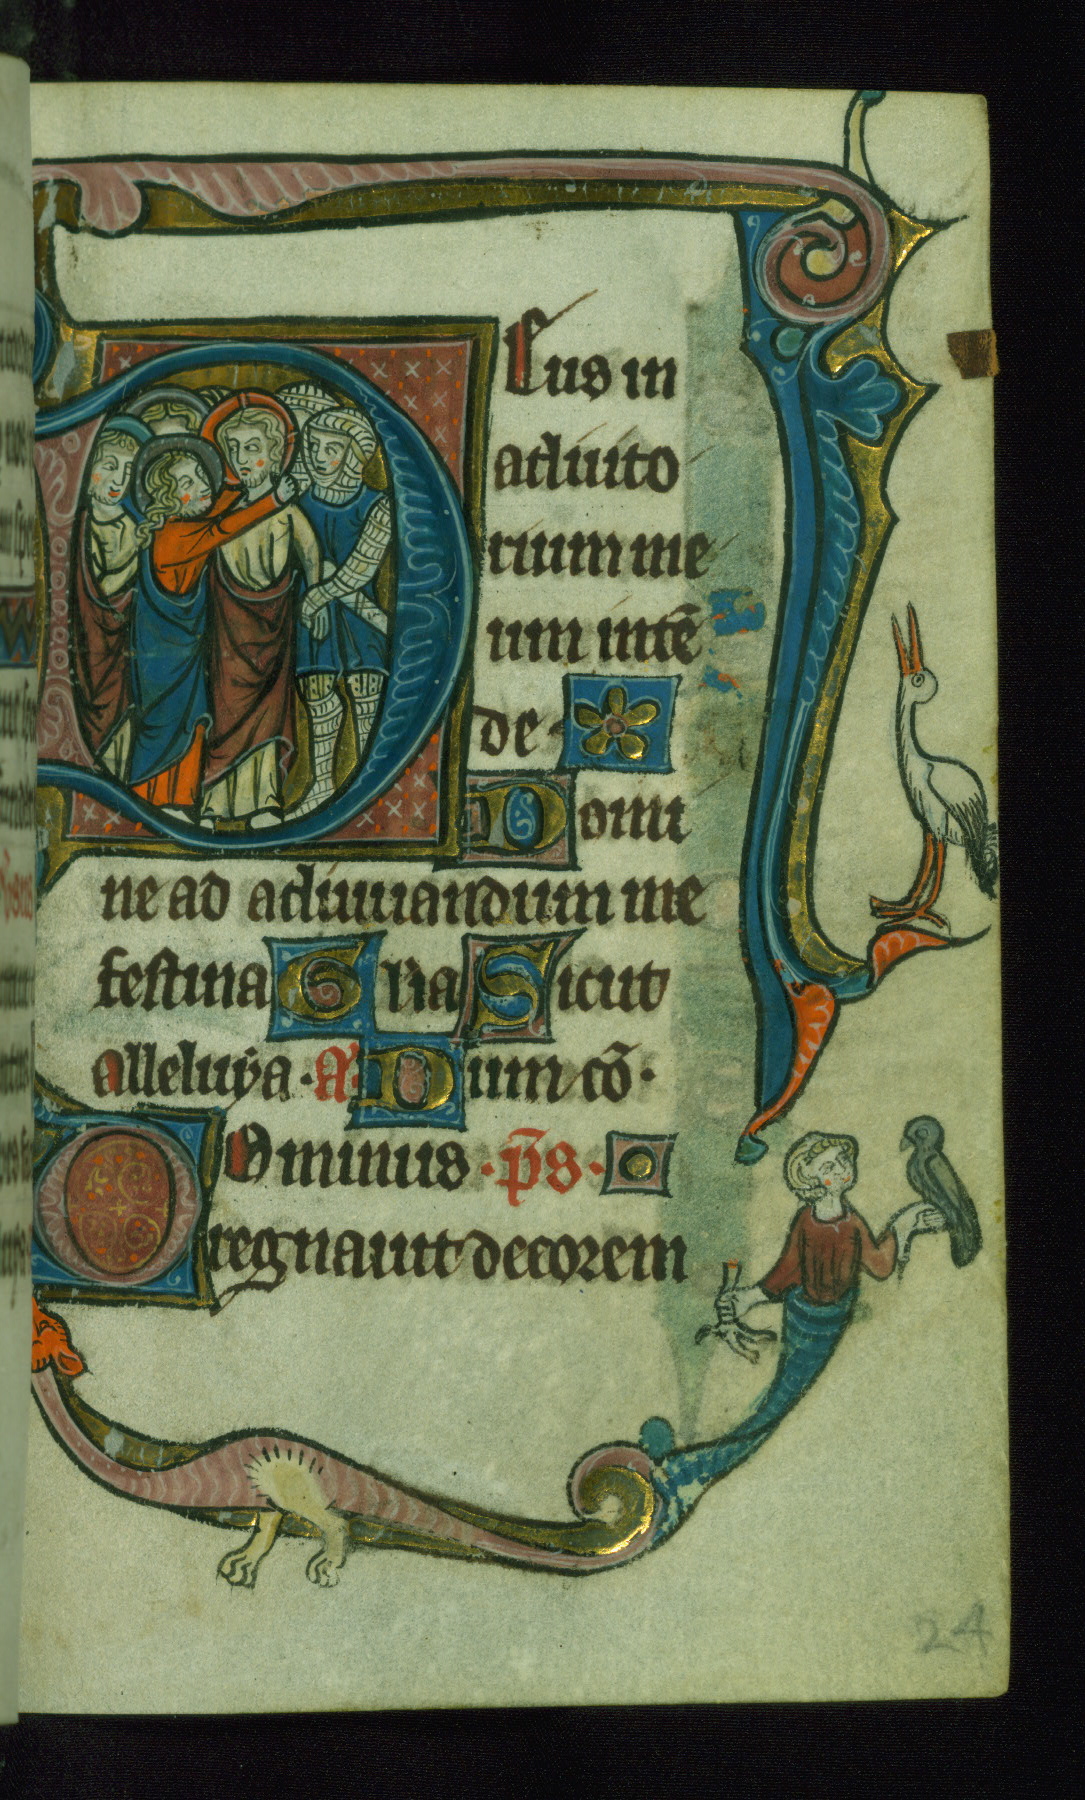 Deus in
adiuto
rium me
um intẽ
de
Domi
ne ad adiuuandum me
festina Gl'ia Sicut
alleluẏa · Aᷓ · Dum cõ ·
DOminus · ps̃ ·
regnauit decorem
24